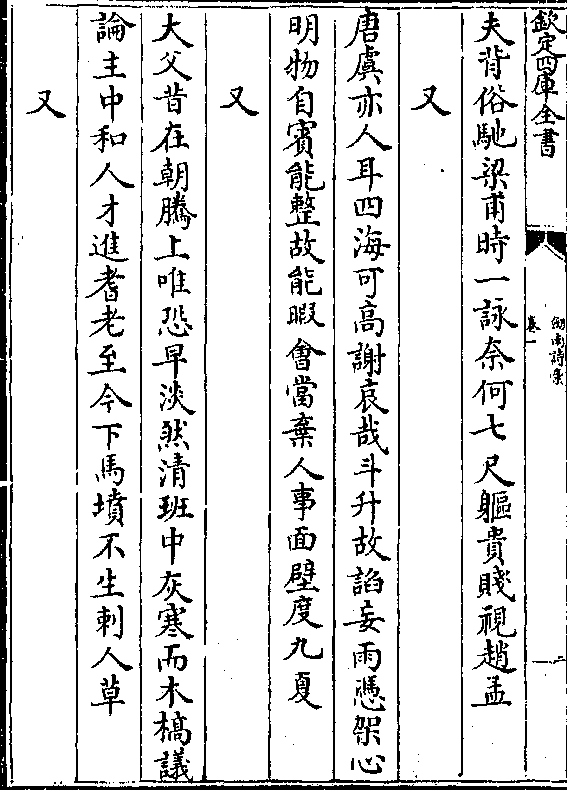 欽定四庫全書
劍南詩稾
卷一
夫背俗馳梁甫時一詠奈何七尺軀貴賤視趙孟
又
唐虞亦人耳四海可高謝哀哉斗升故諂妄雨憑架心
明物自賓能整故能暇會當棄人事面壁度九夏
又
大父昔在朝騰上唯恐早淡然清班中灰寒而木槁議
論主中和人才進耆老至今下馬墳不生刺人草
又